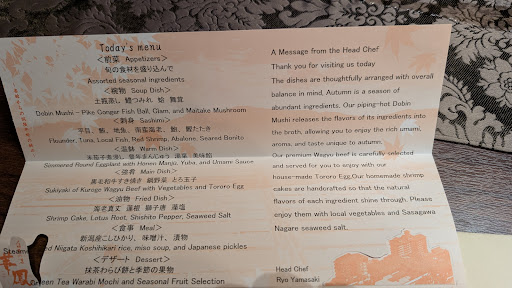 Today's menu
＜前菜 Appetizers＞
旬の食材を盛り込んで
Assorted seasonal ingredients
＜椀物 Soup Dish＞
土瓶蒸し 鱧つみれ 蛤 舞茸
Dobin Mushi – Pike Conger Fish Ball, Clam, and Maitake Mushroom
＜刺身 Sashimi＞
Flounder, Tuna, Local Fish, Red Shrimp, Abalone, Seared Bonito
＜温鉢 Warm Dish＞
Simmered Round Eggplant with Honen Manju, Yuba, and Umami Sauce
Main Dish＞
黒毛和牛すき焼き 鍋野菜 とろ玉子
Sukiyaki of Kuroge Wagyu Beef with Vegetables and Tororo Egg
＜油物 Fried Dish＞
海老真丈 蓮根 獅子唐 藻塩
Shrimp Cake, Lotus Root, Shishito Pepper, Seaweed Salt
＜食事 Meal＞
新潟産こしひかり、味噌汁、漬物
Steamed Niigata Koshihikari rice, miso soup, and Japanese pickles
＜デザート Dessert＞
抹茶わらび餅と季節の果物
Green Tea Warabi Mochi and Seasonal Fruit Selection
A Message from the Head Chef
Thank you for visiting us today
The dishes are thoughtfully arranged with overall
balance in mind, Autumn is a season of
abundant ingredients. Our piping-hot Dobin
Mushi releases the flavors of its ingredients into
the broth, allowing you to enjoy the rich umami,
aroma, and taste unique to autumn.
Our premium Wagyu beef is carefully selected
and served for you to enjoy with our
house-made Tororo Egg.Our homemade shrimp
cakes are handcrafted so that the natural
flavors of each ingredient shine through. Please
enjoy them with local vegetables and Sasagawa
Nagare seaweed salt.
Head Chef
Ryo Yamasaki